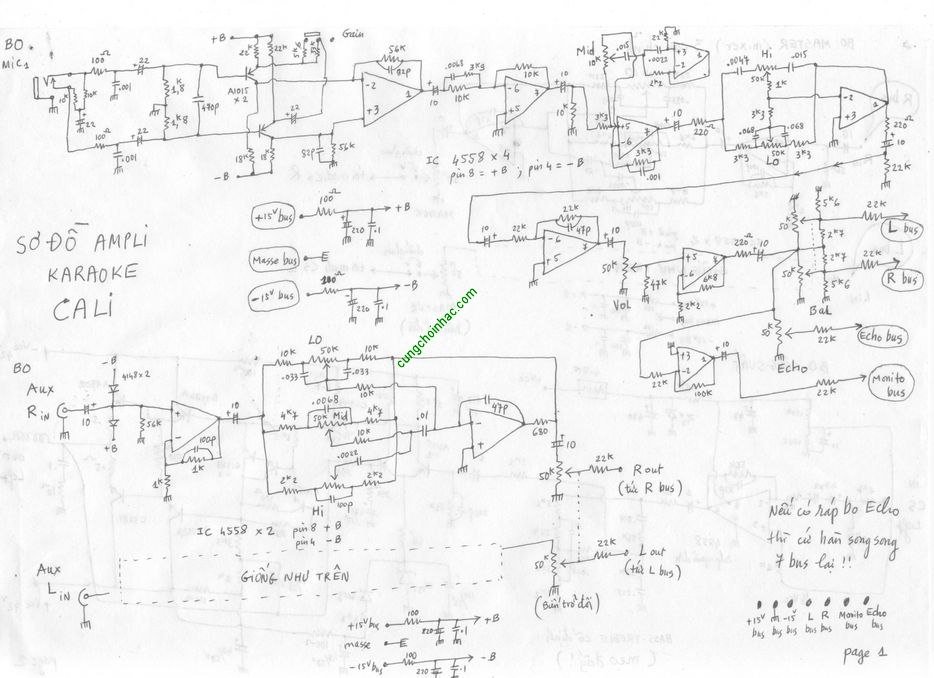 BO
Mic1
+B
Gain
22k
22k
56k
82p
100Ω
22
.001
10k
22
1,8k
1,8k
470p
A1015
x 2
22
-2
+3
1
.0068
3k3
10
10k
10k
-6
+5
7
10
10k
Mid
10k
.015
22k
.0022
2k2
+3
-2
1
3k3
+5
-6
7
3k3
.001
10
220Ω
.0047
Hi
.015
50k
1k
3k3
.068
.068
3k3
50k
3k3
LO
-2
+3
1
220Ω
10
22k
100Ω
.001
22
-B
18k
18k
82p
56k
IC 4558 x 4
pin 8 = +B ; pin 4 = -B
SƠ ĐỒ AMPLI
KARAOKE
CALI
+15V bus
100Ω
+B
220
.1
Masse bus
E
-15V bus
100Ω
-B
220
.1
10
22k
22k
47p
-6
+5
7
10
50k
Vol
47k
+5
-6
7
6k8
2k2
220Ω
10
50k
50k
5k6
2k7
2k7
5k6
Bal
22k
L bus
22k
R bus
50k
Echo
22k
Echo bus
22k
+3
-2
1
100k
10
22k
Monito
bus
cungchoinhac.com
BO
Aux
R IN
-B
4148x2
10
+B
56k
+
-
100p
1k
1k
10
LO
10k
50k
10k
.033
.033
10k
.0068
4k7
50k Mid
4k7
10k
.01
.0022
2k2
2k2
100p
Hi
47p
-
+
680
10
50k
22k
R out
(tức R bus)
22k
L out
(tức L bus)
50k
(Biến trở đôi)
IC 4558 x 2
pin 8 +B
pin 4 -B
Aux
L IN
GIỐNG NHƯ TRÊN
+15V bus
100
+B
220
.1
masse
E
-15V bus
100
-B
220
.1
Nếu có ráp bo Echo
thì cứ hàn song song
7 bus lại !!
+15V
bus
-15V
bus
L
bus
R
bus
Monito
bus
Echo
bus
page 1